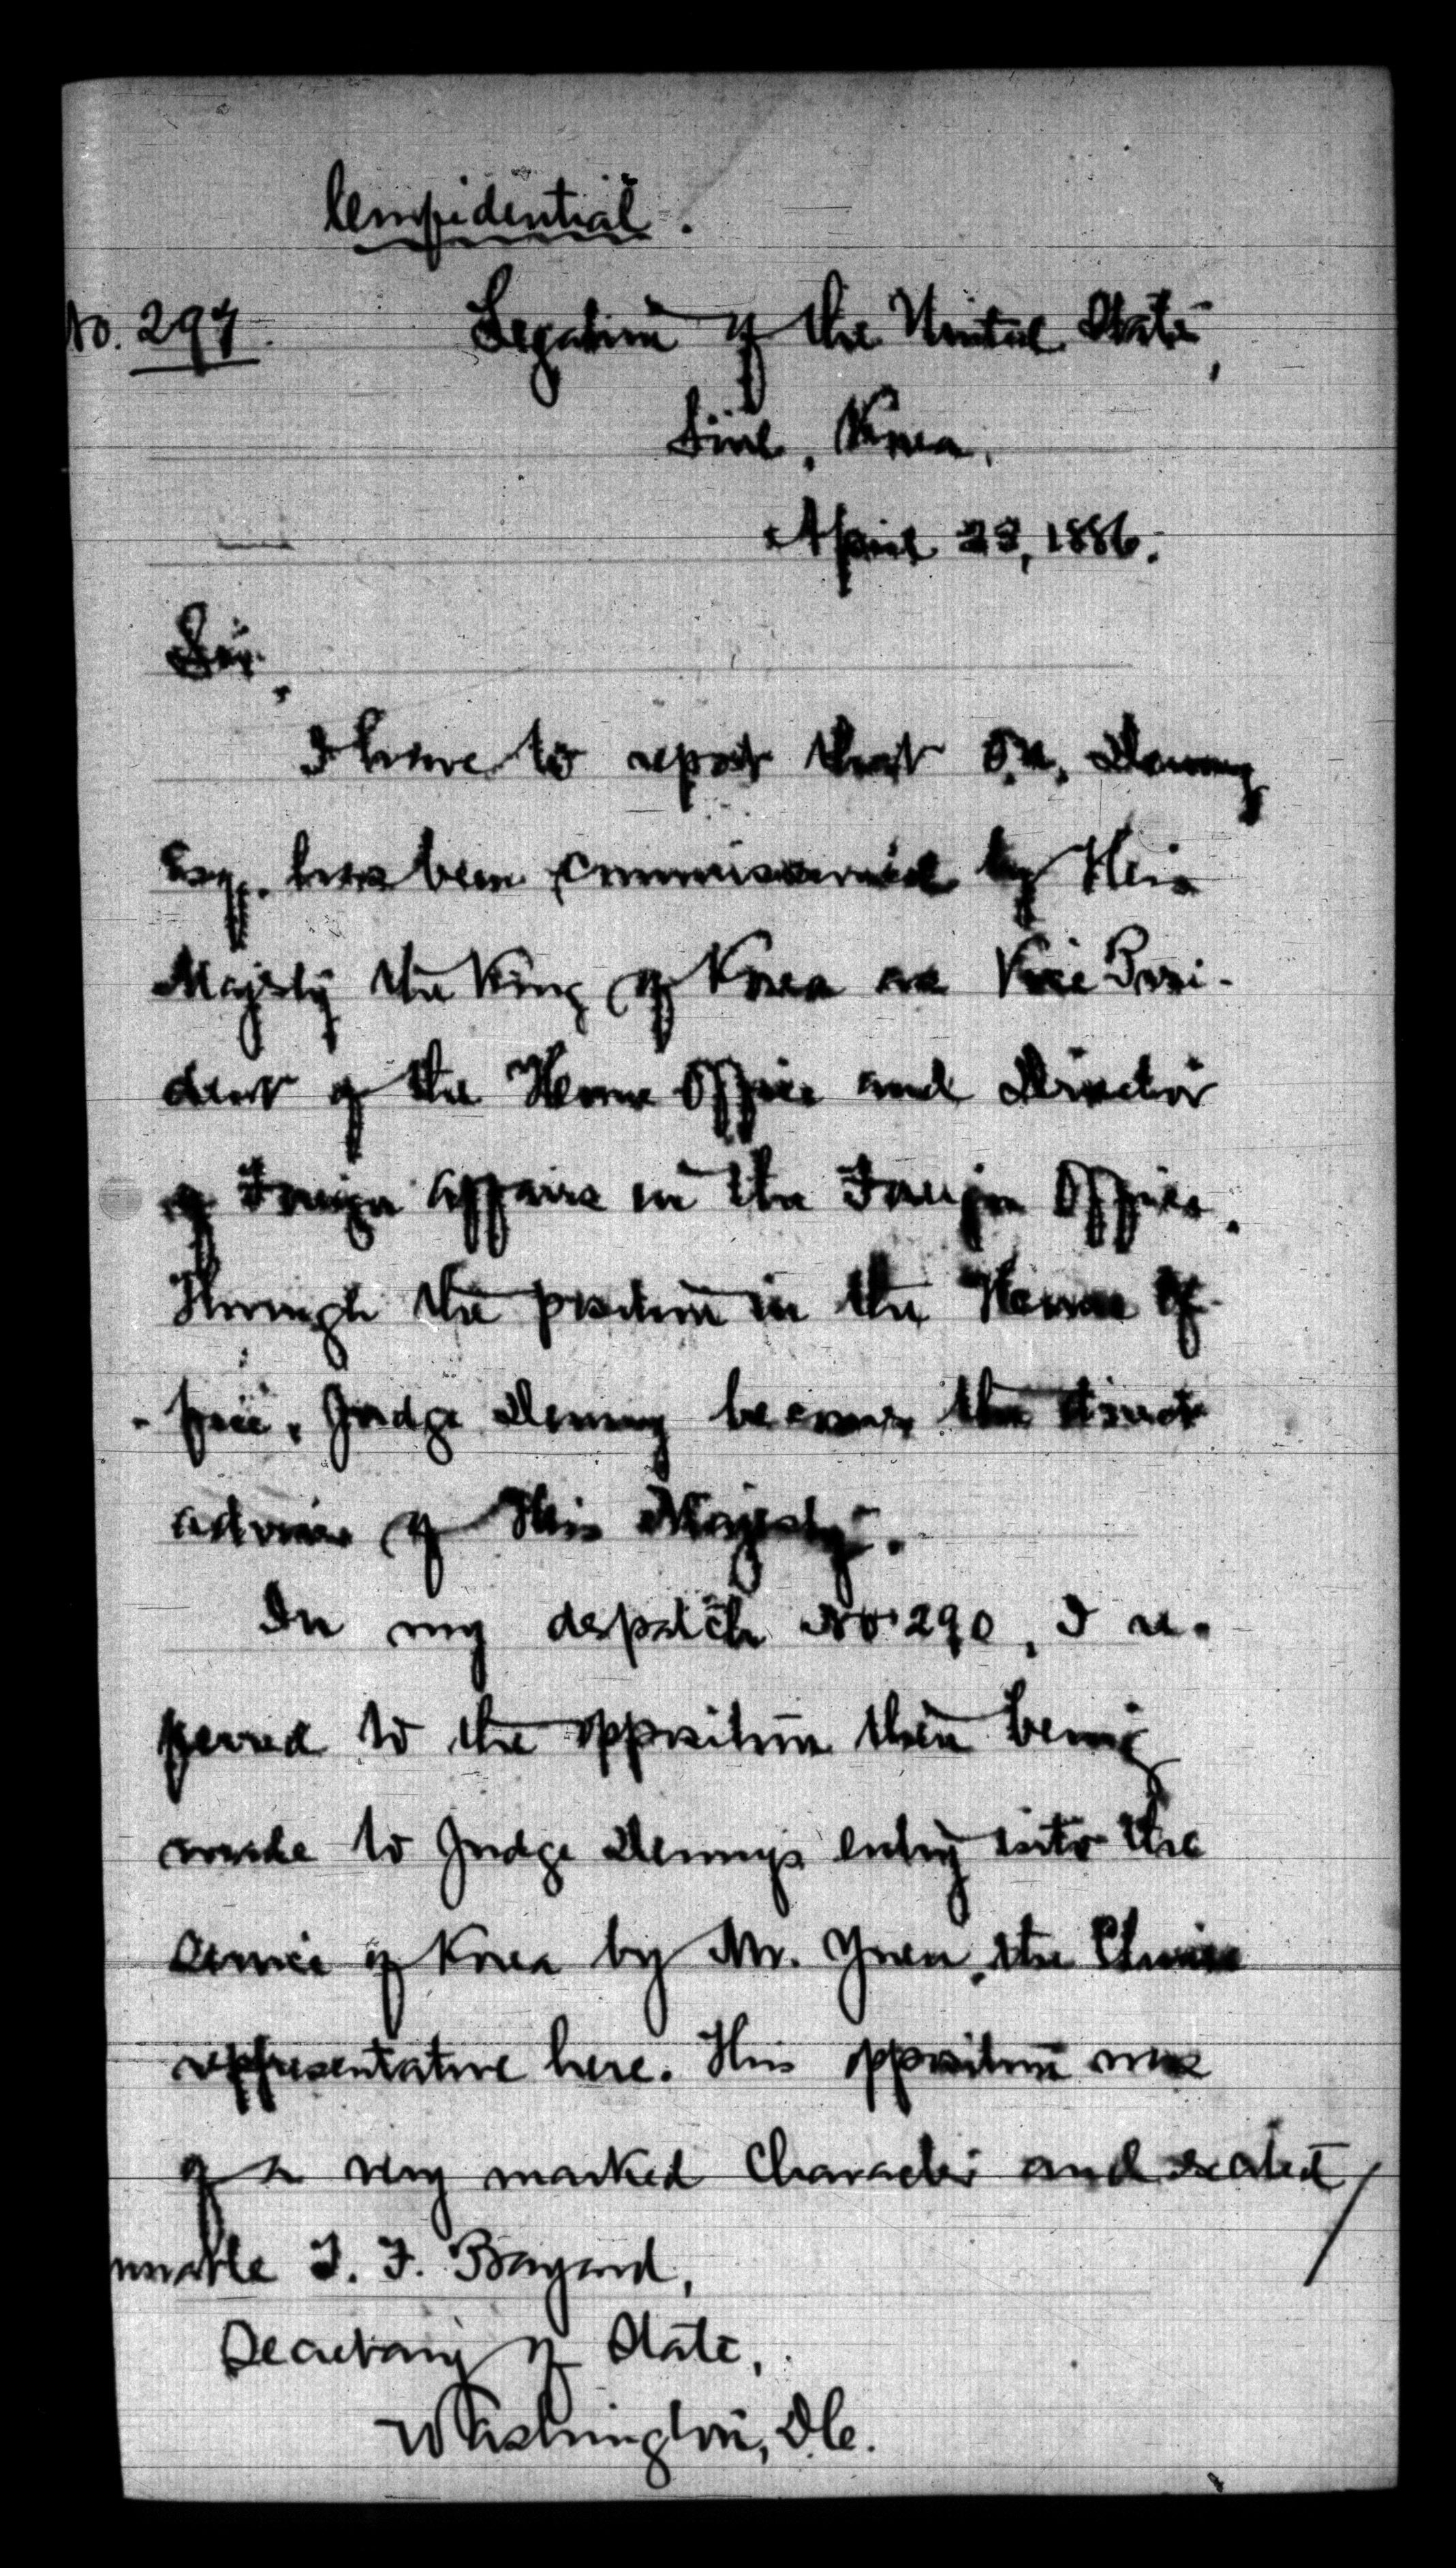 Confidential.
No. 297. Legation of the United States,
Söul, Korea,
April 23, 1886.
Sir,
I have to report that O.N. Denny
Esq. has been commissioned by His
Majesty the King of Korea as Vice Presi-
dent of the Home Office and Director
of Foreign Affairs in the Foreign Office.
Through the position in the Home Of-
-fice, Judge Denny becomes the direct
adviser of His Majesty.
In my despatch No 290, I re-
ferred to the opposition then being
made to Judge Denny's entry into the
service of Korea by Mr. Yuen, the Chinese
representative here. This opposition was
of a very marked character and
norable T. F. Bayard,
Secretary of State,
Washington, D.C.